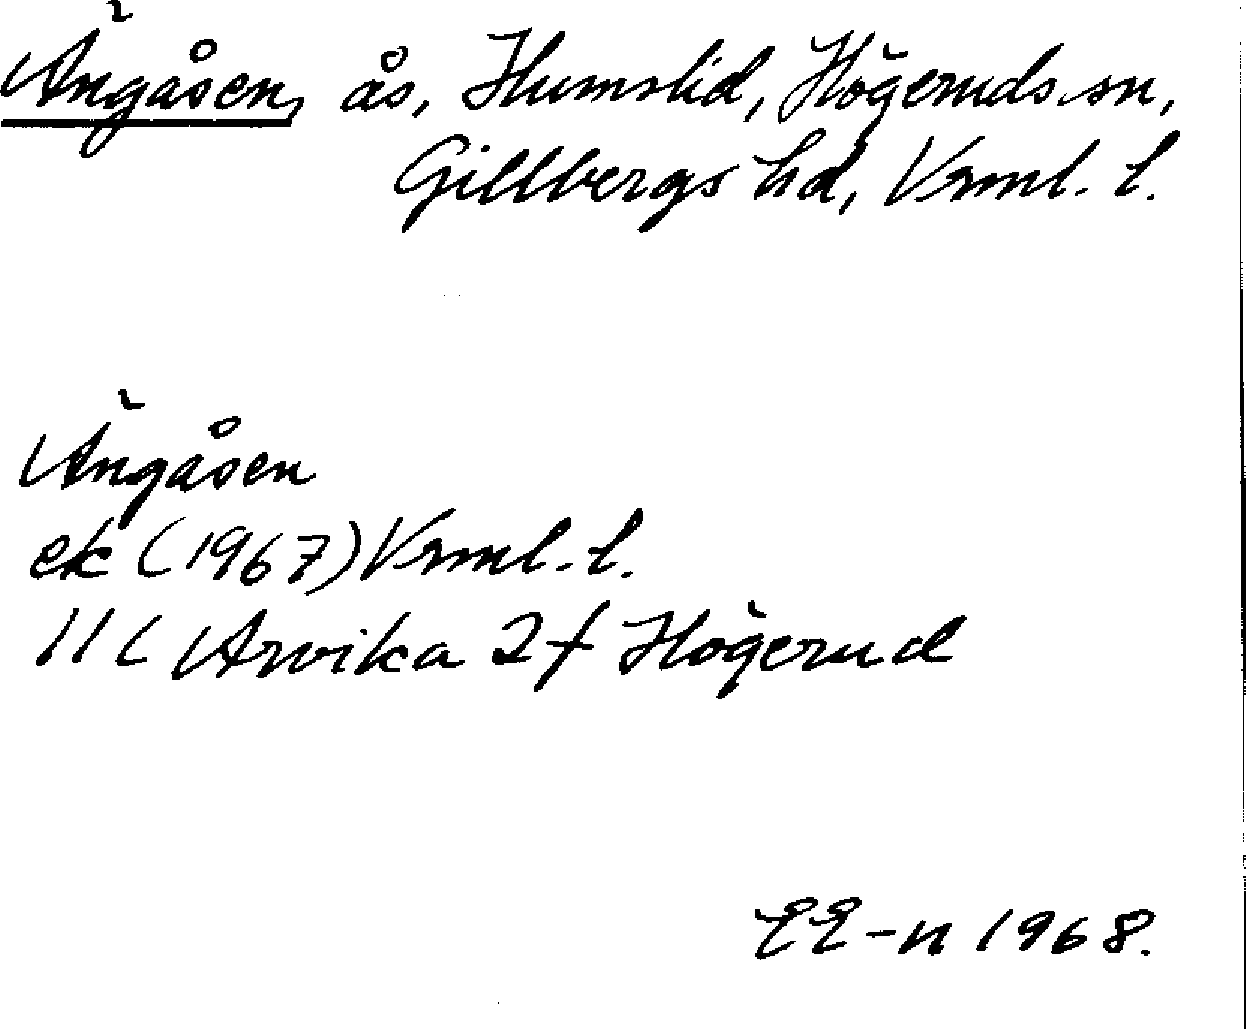 Ängåsen, ås, Humslid, Högeruds sn,
Gillbergs hd, Vrml. l.
Ängåsen
ek (1967) Vrml. l.
11C Arvika 2f Högerud
EE-n 1968.